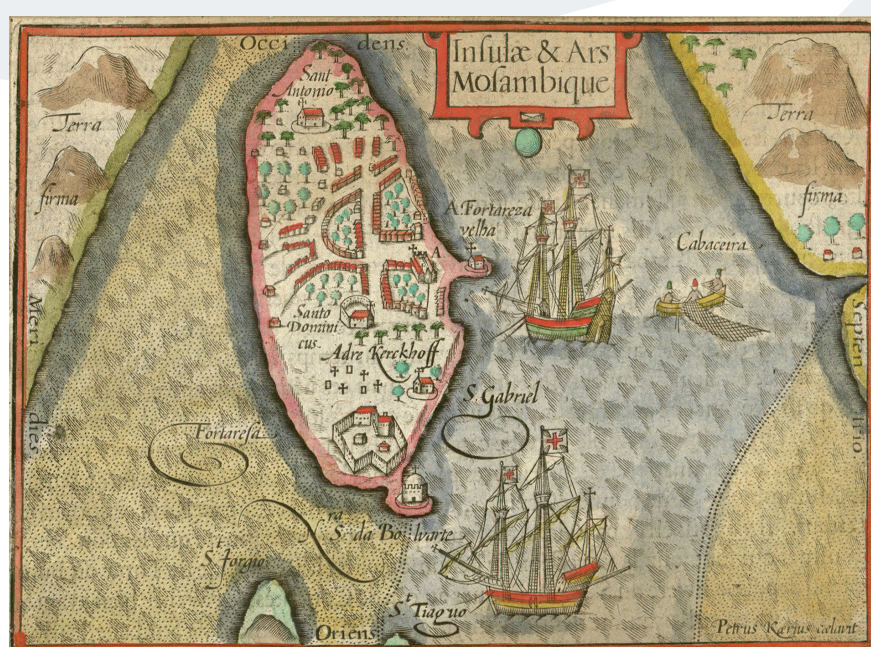 Occidens.
Insulæ & Ars
Mosambique
Sant
Antonio
Terra
firma
Terra
firma
A. Fortareza
velha
Cabaceira
A
Meridies
Septentrio
Santo
Domini
cus.
Adre Kerckhoff
S. Gabriel
Fortaresa
Nra S. da Bolwarte
St Jorgio
St Tiaguo
Oriens
Petrus Kærius cælavit